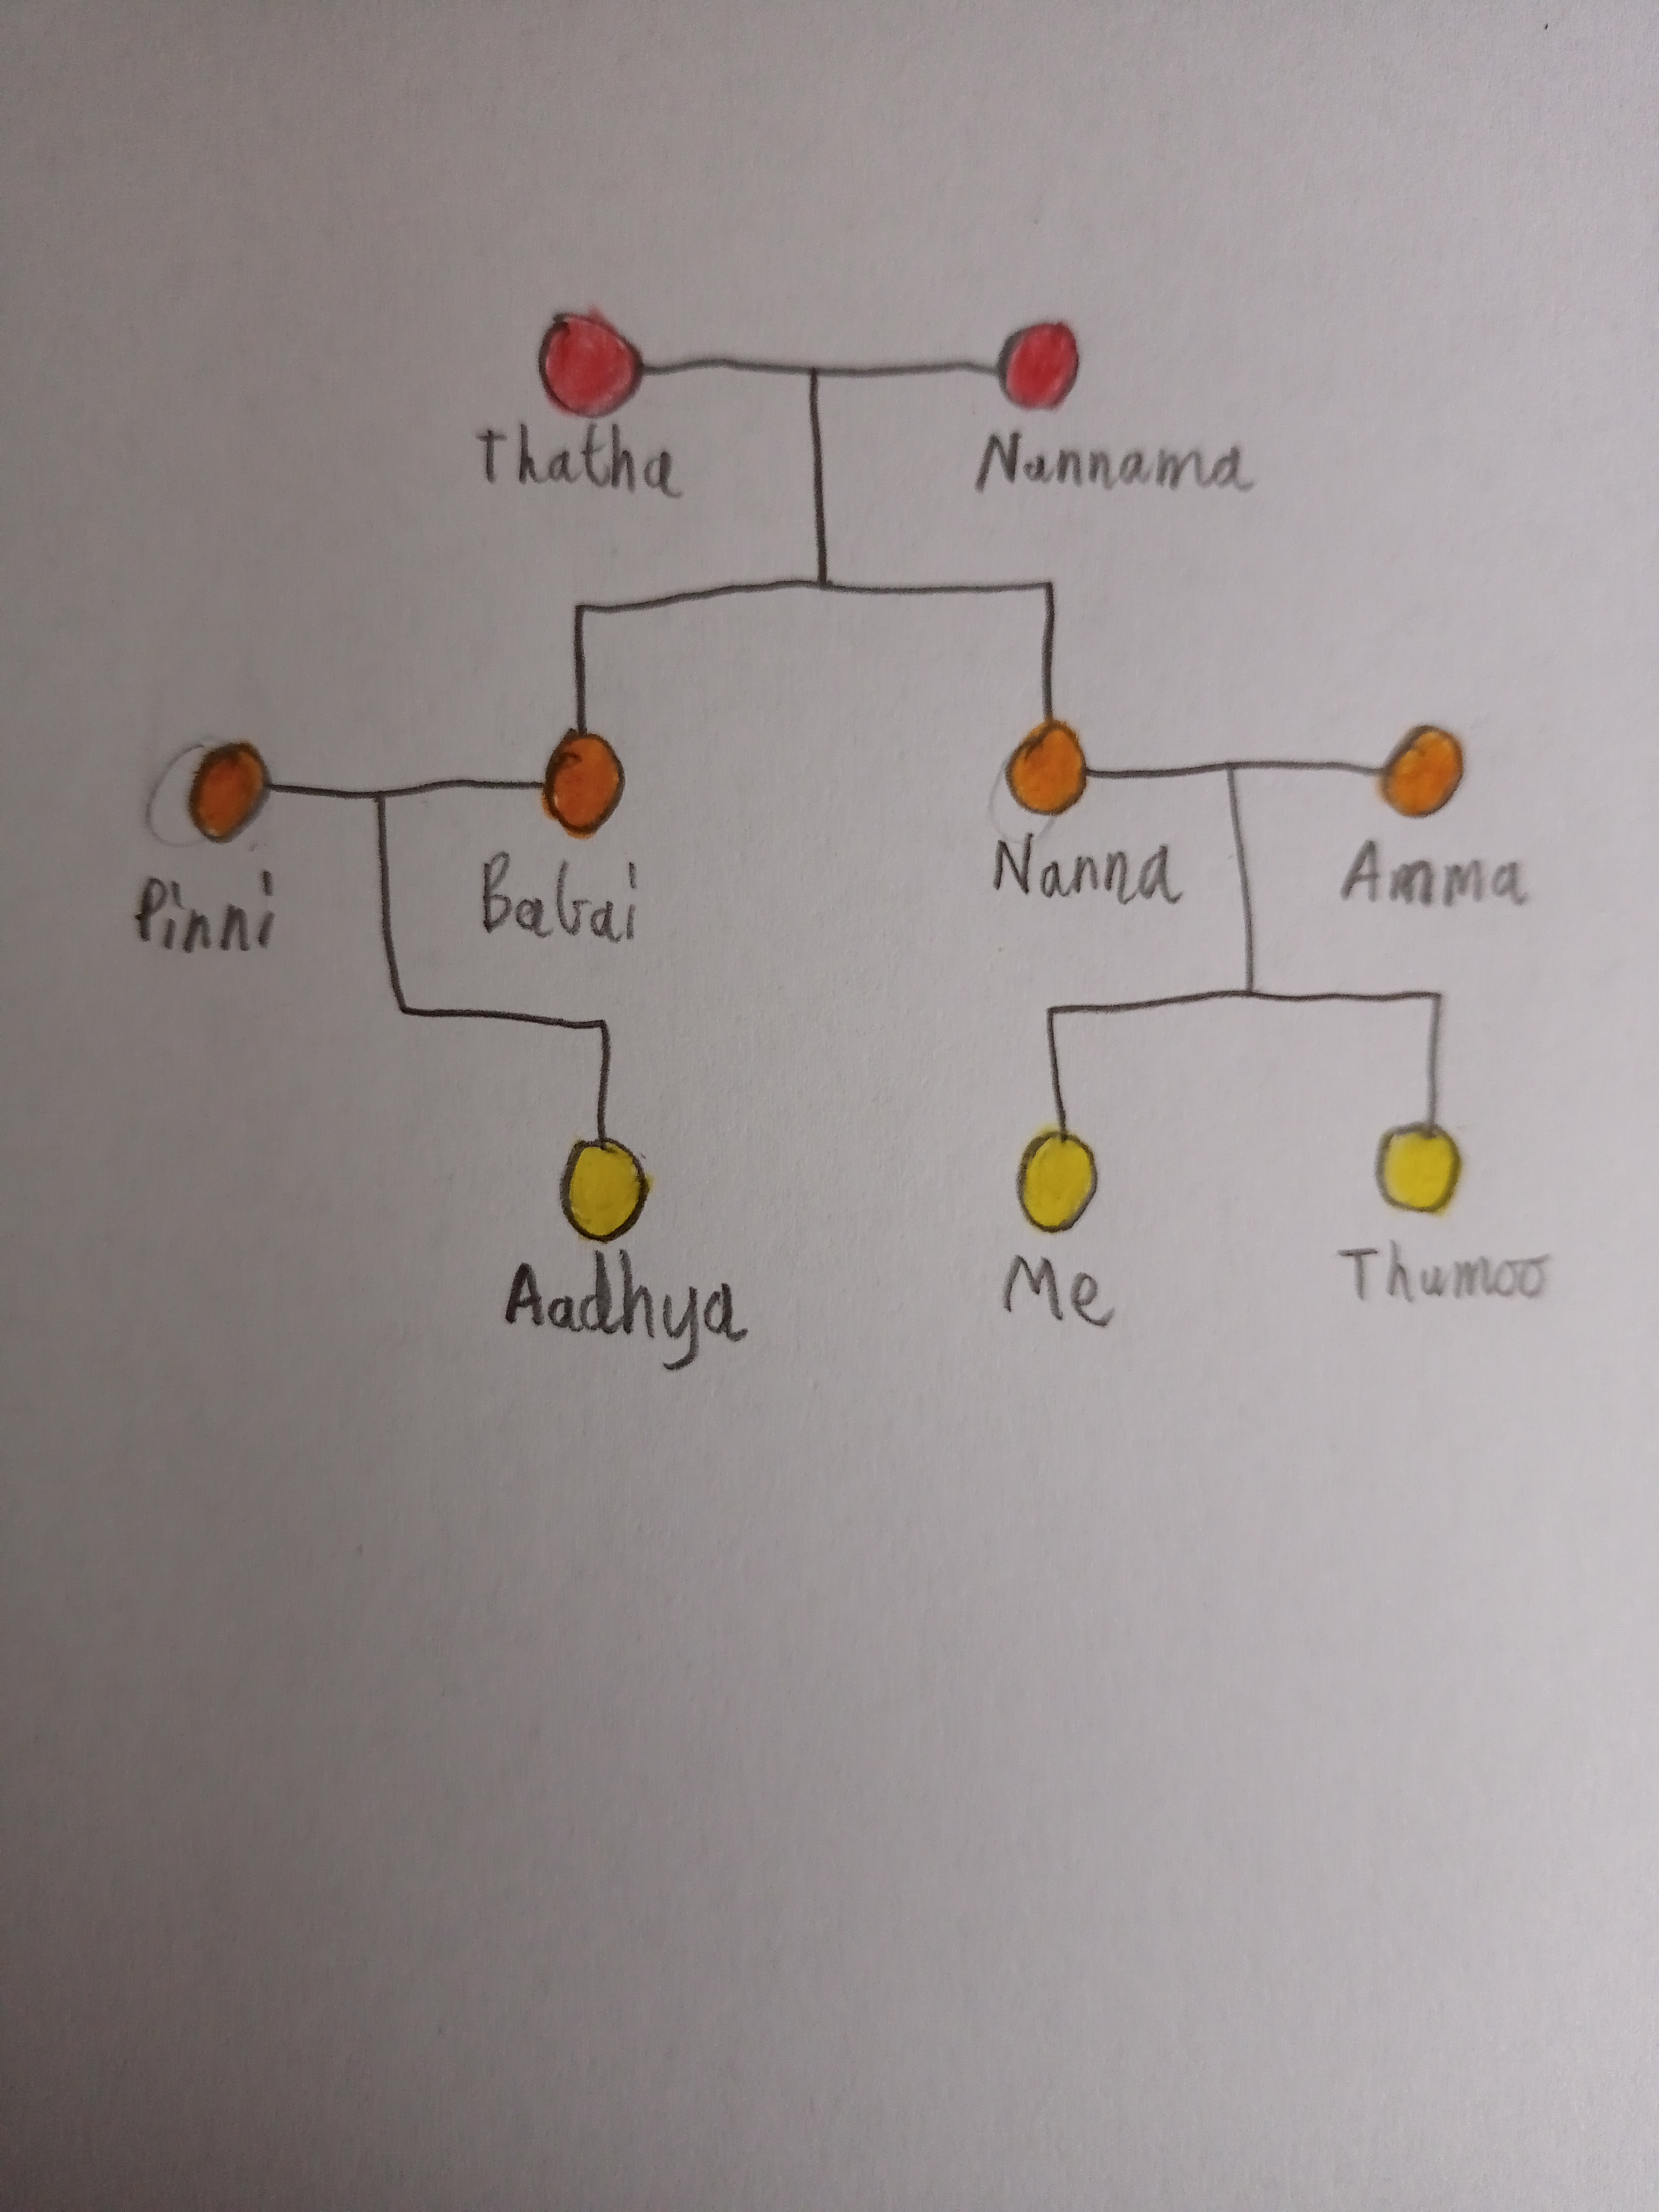 Thatha
Nannama
Pinni
Babai
Nanna
Amma
Aadhya
Me
Thumoo